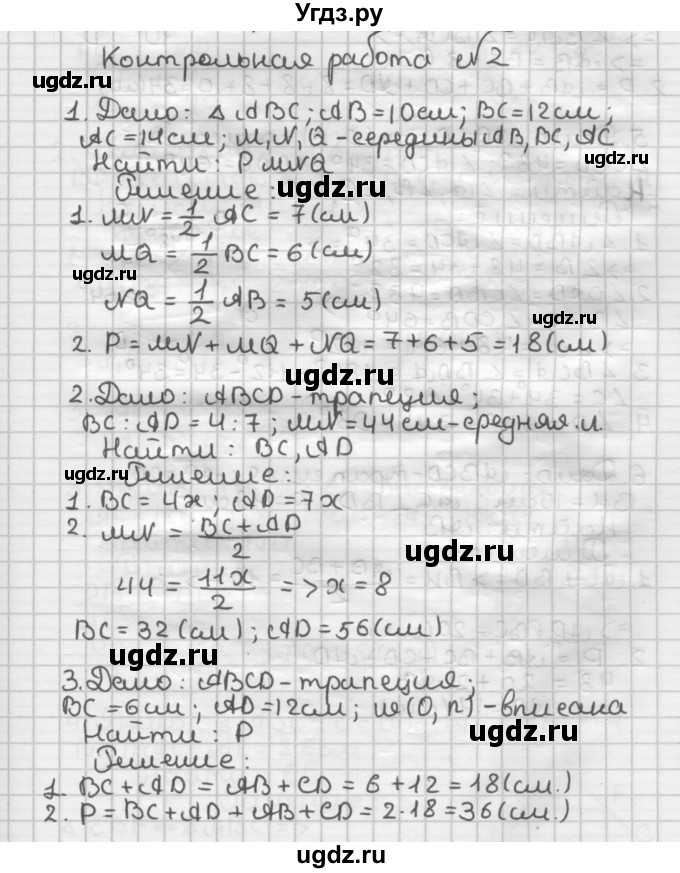 Угдз.ру
Контрольная работа №2
ugdz.ru
1. Дано: △ ABC; AB=10см; BC=12см;
AC=14см; M, N, Q - середины AB, BC, AC
ugdz.ru
Найти: P MNQ
Решение:
ugdz.ru
1. MN = 1/2 AC = 7(см)
MQ = 1/2 BC = 6(см)
ugdz.ru
NQ = 1/2 AB = 5(см)
ugdz.ru
2. P = MN + MQ + NQ = 7+6+5 = 18(см)
ugdz.ru
2. Дано: ABCD - трапеция;
BC : AD = 4 : 7 ; MN = 44см - средняя л.
Найти: BC, AD
ugdz.ru
Решение:
1. BC = 4x ; AD = 7x
2. MN = BC + AD / 2
ugdz.ru
44 = 11x / 2 => x = 8
BC = 32 (см) ; AD = 56 (см)
ugdz.ru
3. Дано: ABCD - трапеция;
BC = 6см; AD = 12см; w (O, r) - вписана
Найти: P
ugdz.ru
Решение:
1. BC + AD = AB + CD = 6 + 12 = 18(см.)
2. P = BC + AD + AB + CD = 2·18 = 36(см.)
ugdz.ru